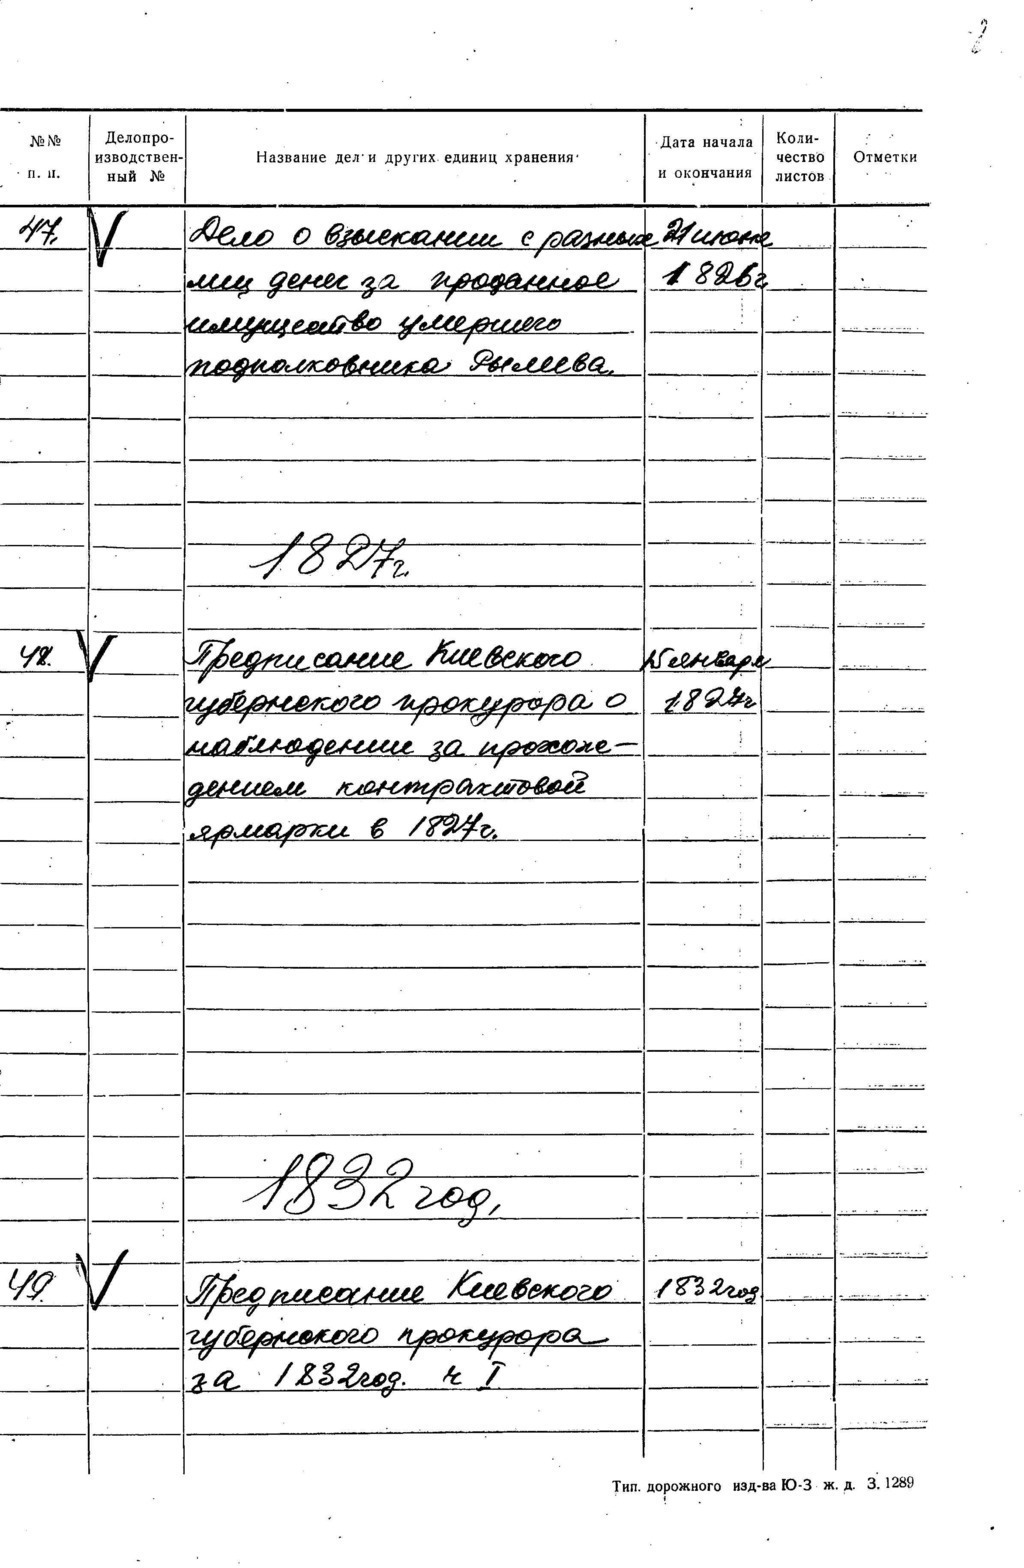 №№ п. п. Делопроизводственный № Название дел и других единиц хранения Дата начала и окончания Количество листов Отметки
47. V Дело о взыскании с разных 21 июня
лиц денег за проданное 1826г
имущество умершего
подполковника Рылеева.
1827г.
48. V Предписание Киевского 15 января
губернского прокурора о 1827г
наблюдении за прохож-
дением контрактовой
ярмарки в 1827г.
1832 год.
49. V Предписание Киевского 1832год
губернского прокурора
за 1832год. ч I
Тип. дорожного изд-ва Ю-З ж. д. З. 1289